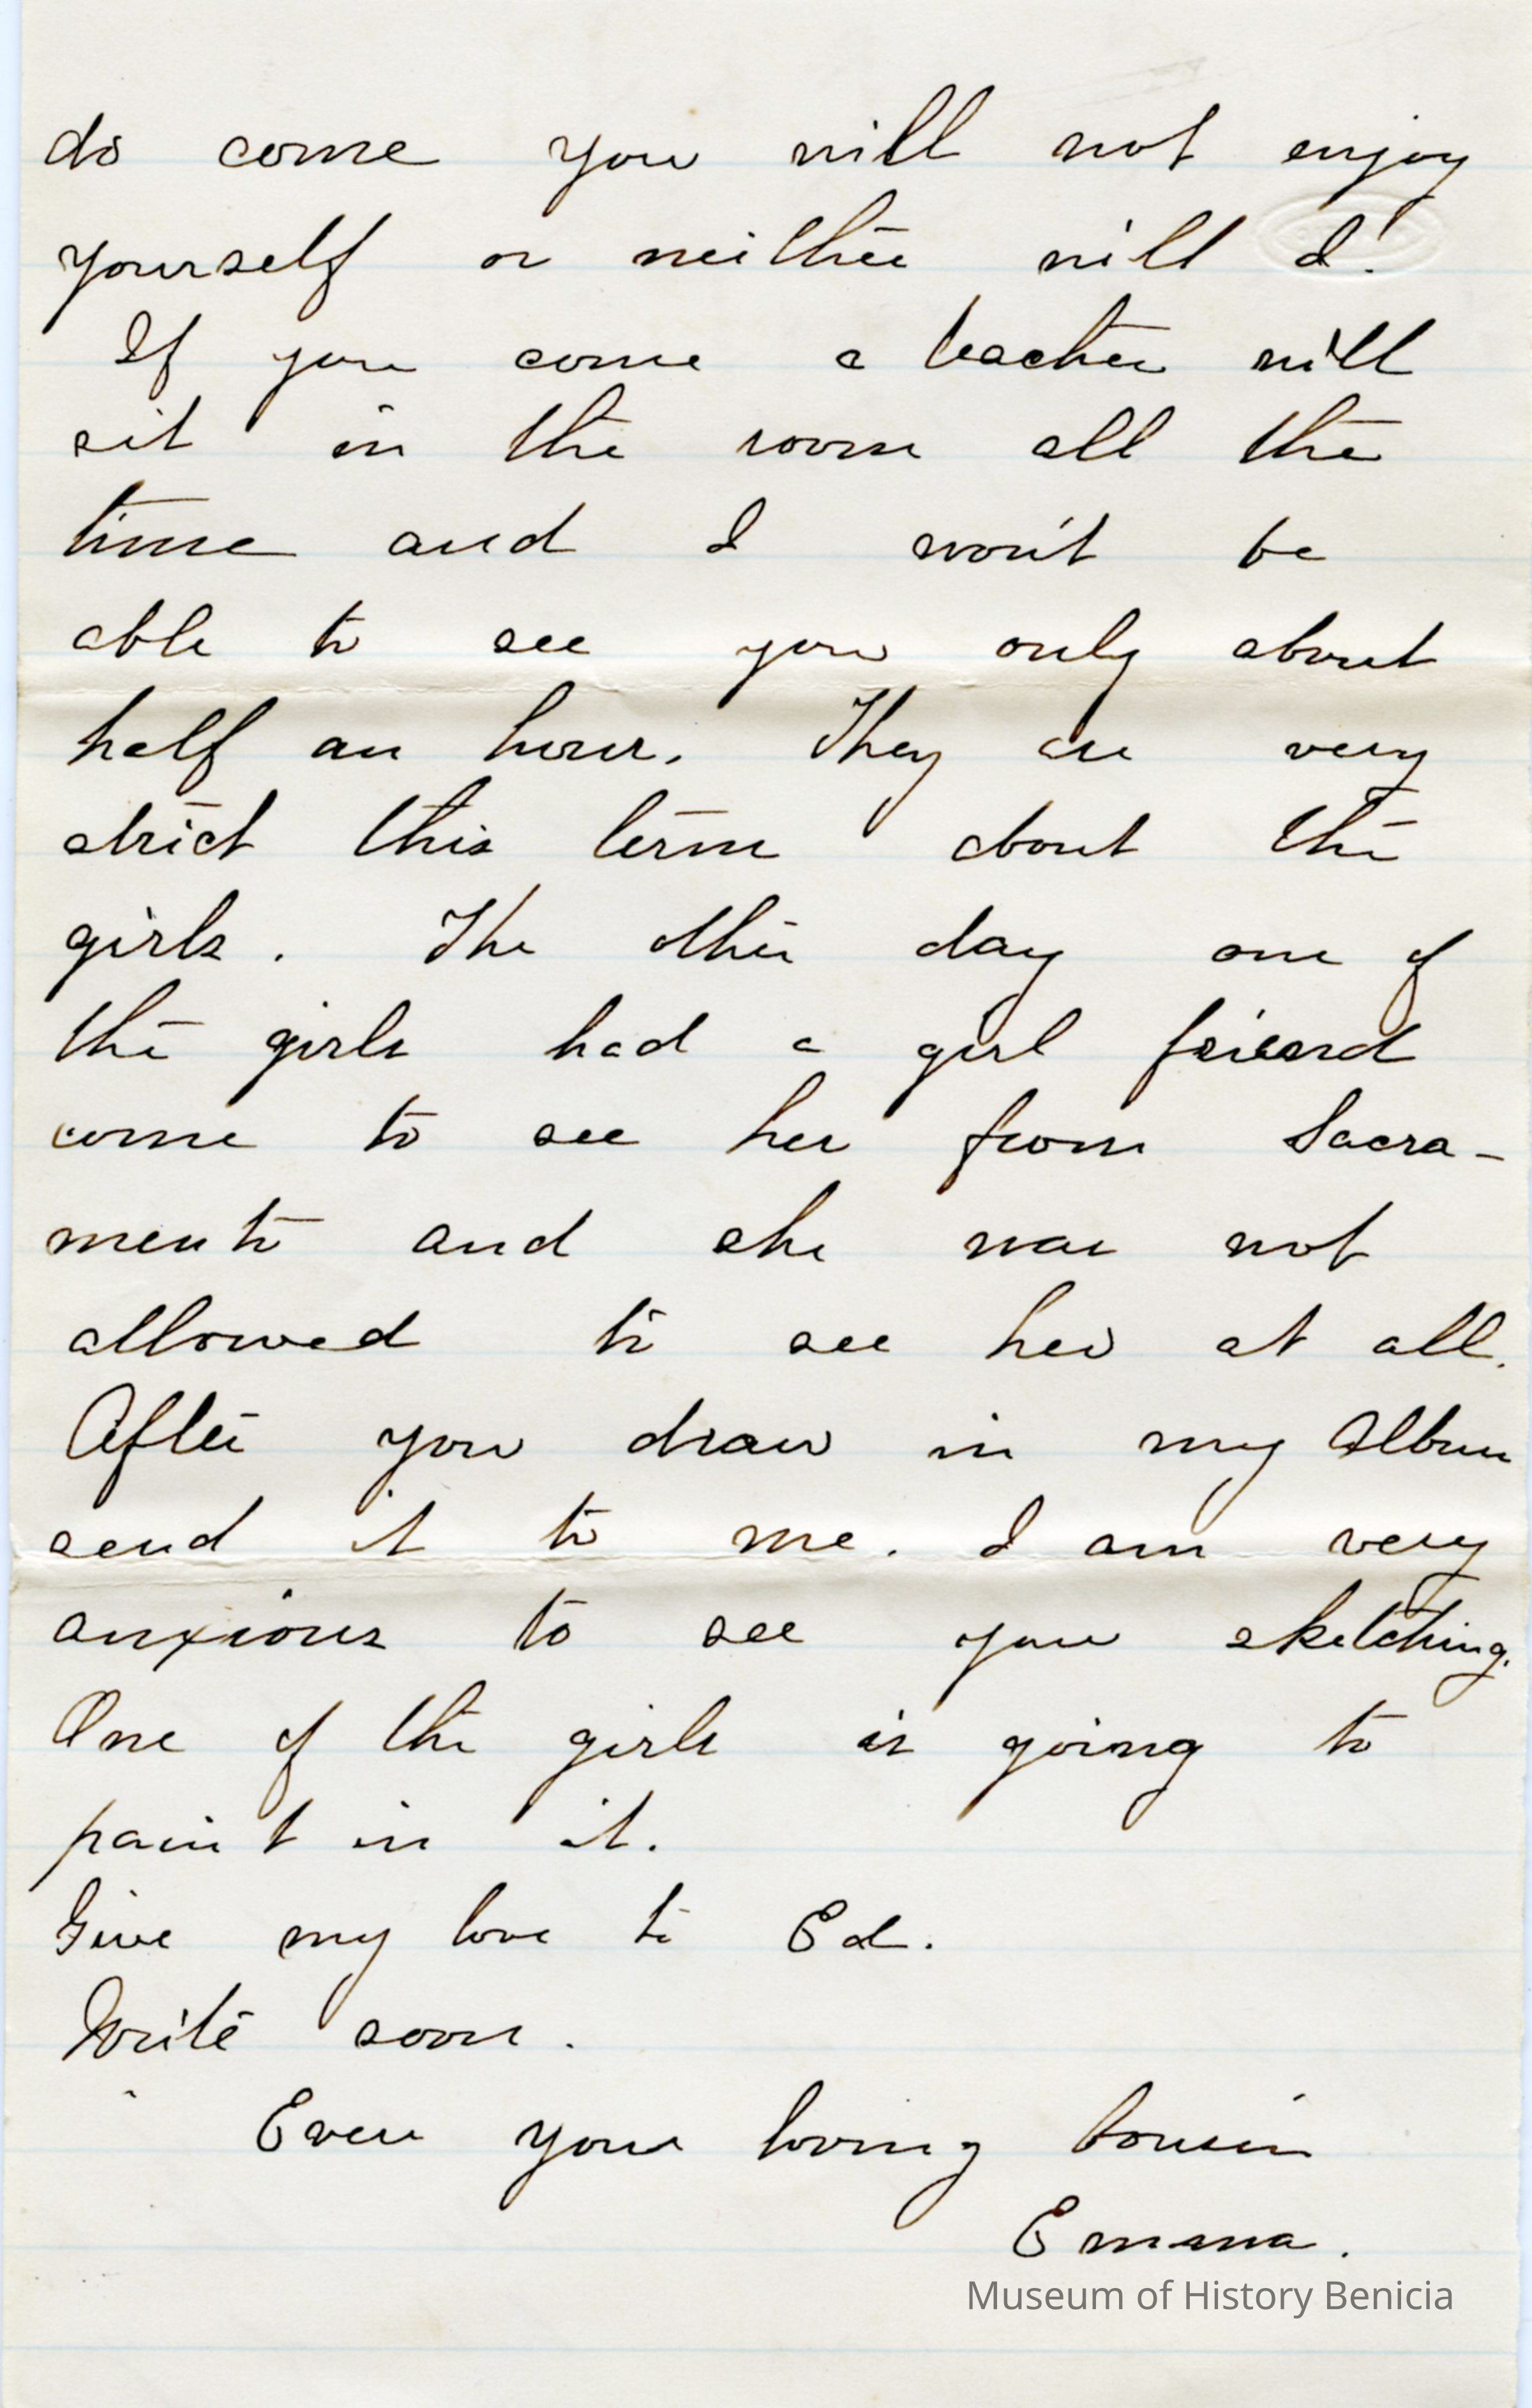 do come you will not enjoy
yourself or neither will I!
If you come a teacher will
sit in the room all the
time and I won't be
able to see you only about
half an hour. They are very
strict this term about the
girls. The other day one of
the girls had a girl friend
come to see her from Sacra-
mento and she was not
allowed to see her at all.
After you draw in my Album
send it to me. I am very
anxious to see your sketching.
One of the girls is going to
paint in it.
Give my love to Ed.
Write soon.
Ever your loving Cousin
Emma.
Museum of History Benicia